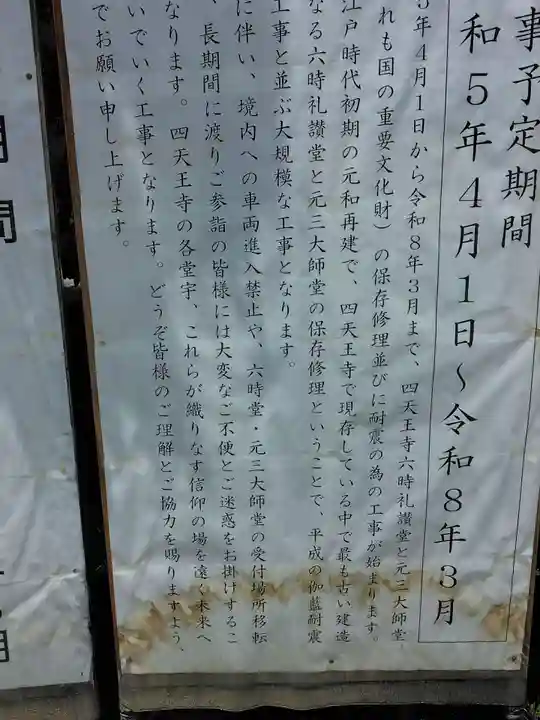 事予定期間
和5年4月1日～令和8年3月
5年4月1日から令和8年3月まで、四天王寺六時礼讃堂と元三大師堂
れも国の重要文化財）の保存修理並びに耐震の為の工事が始まります。
江戸時代初期の元和再建で、四天王寺で現存している中で最も古い建造
なる六時礼讃堂と元三大師堂の保存修理ということで、平成の伽藍耐震
工事と並ぶ大規模な工事となります。
に伴い、境内への車両進入禁止や、六時堂・元三大師堂の受付場所移転
、長期間に渡りご参詣の皆様には大変なご不便とご迷惑をお掛けするこ
なります。四天王寺の各堂宇、これらが織りなす信仰の場を遠く未来へ
いでいく工事となります。どうぞ皆様のご理解とご協力を賜りますよう、
でお願い申し上げます。
期間